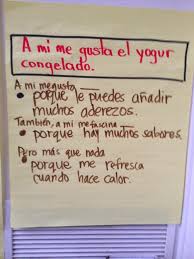 A mi me gusta el yogur
congelado.
A mi me gusta ___
• porque le puedes añadir
muchos aderezos.
También, a mi me fascina ___
• porque hay muchos sabores.
Pero más que nada
porque me refresca
cuando hace calor.